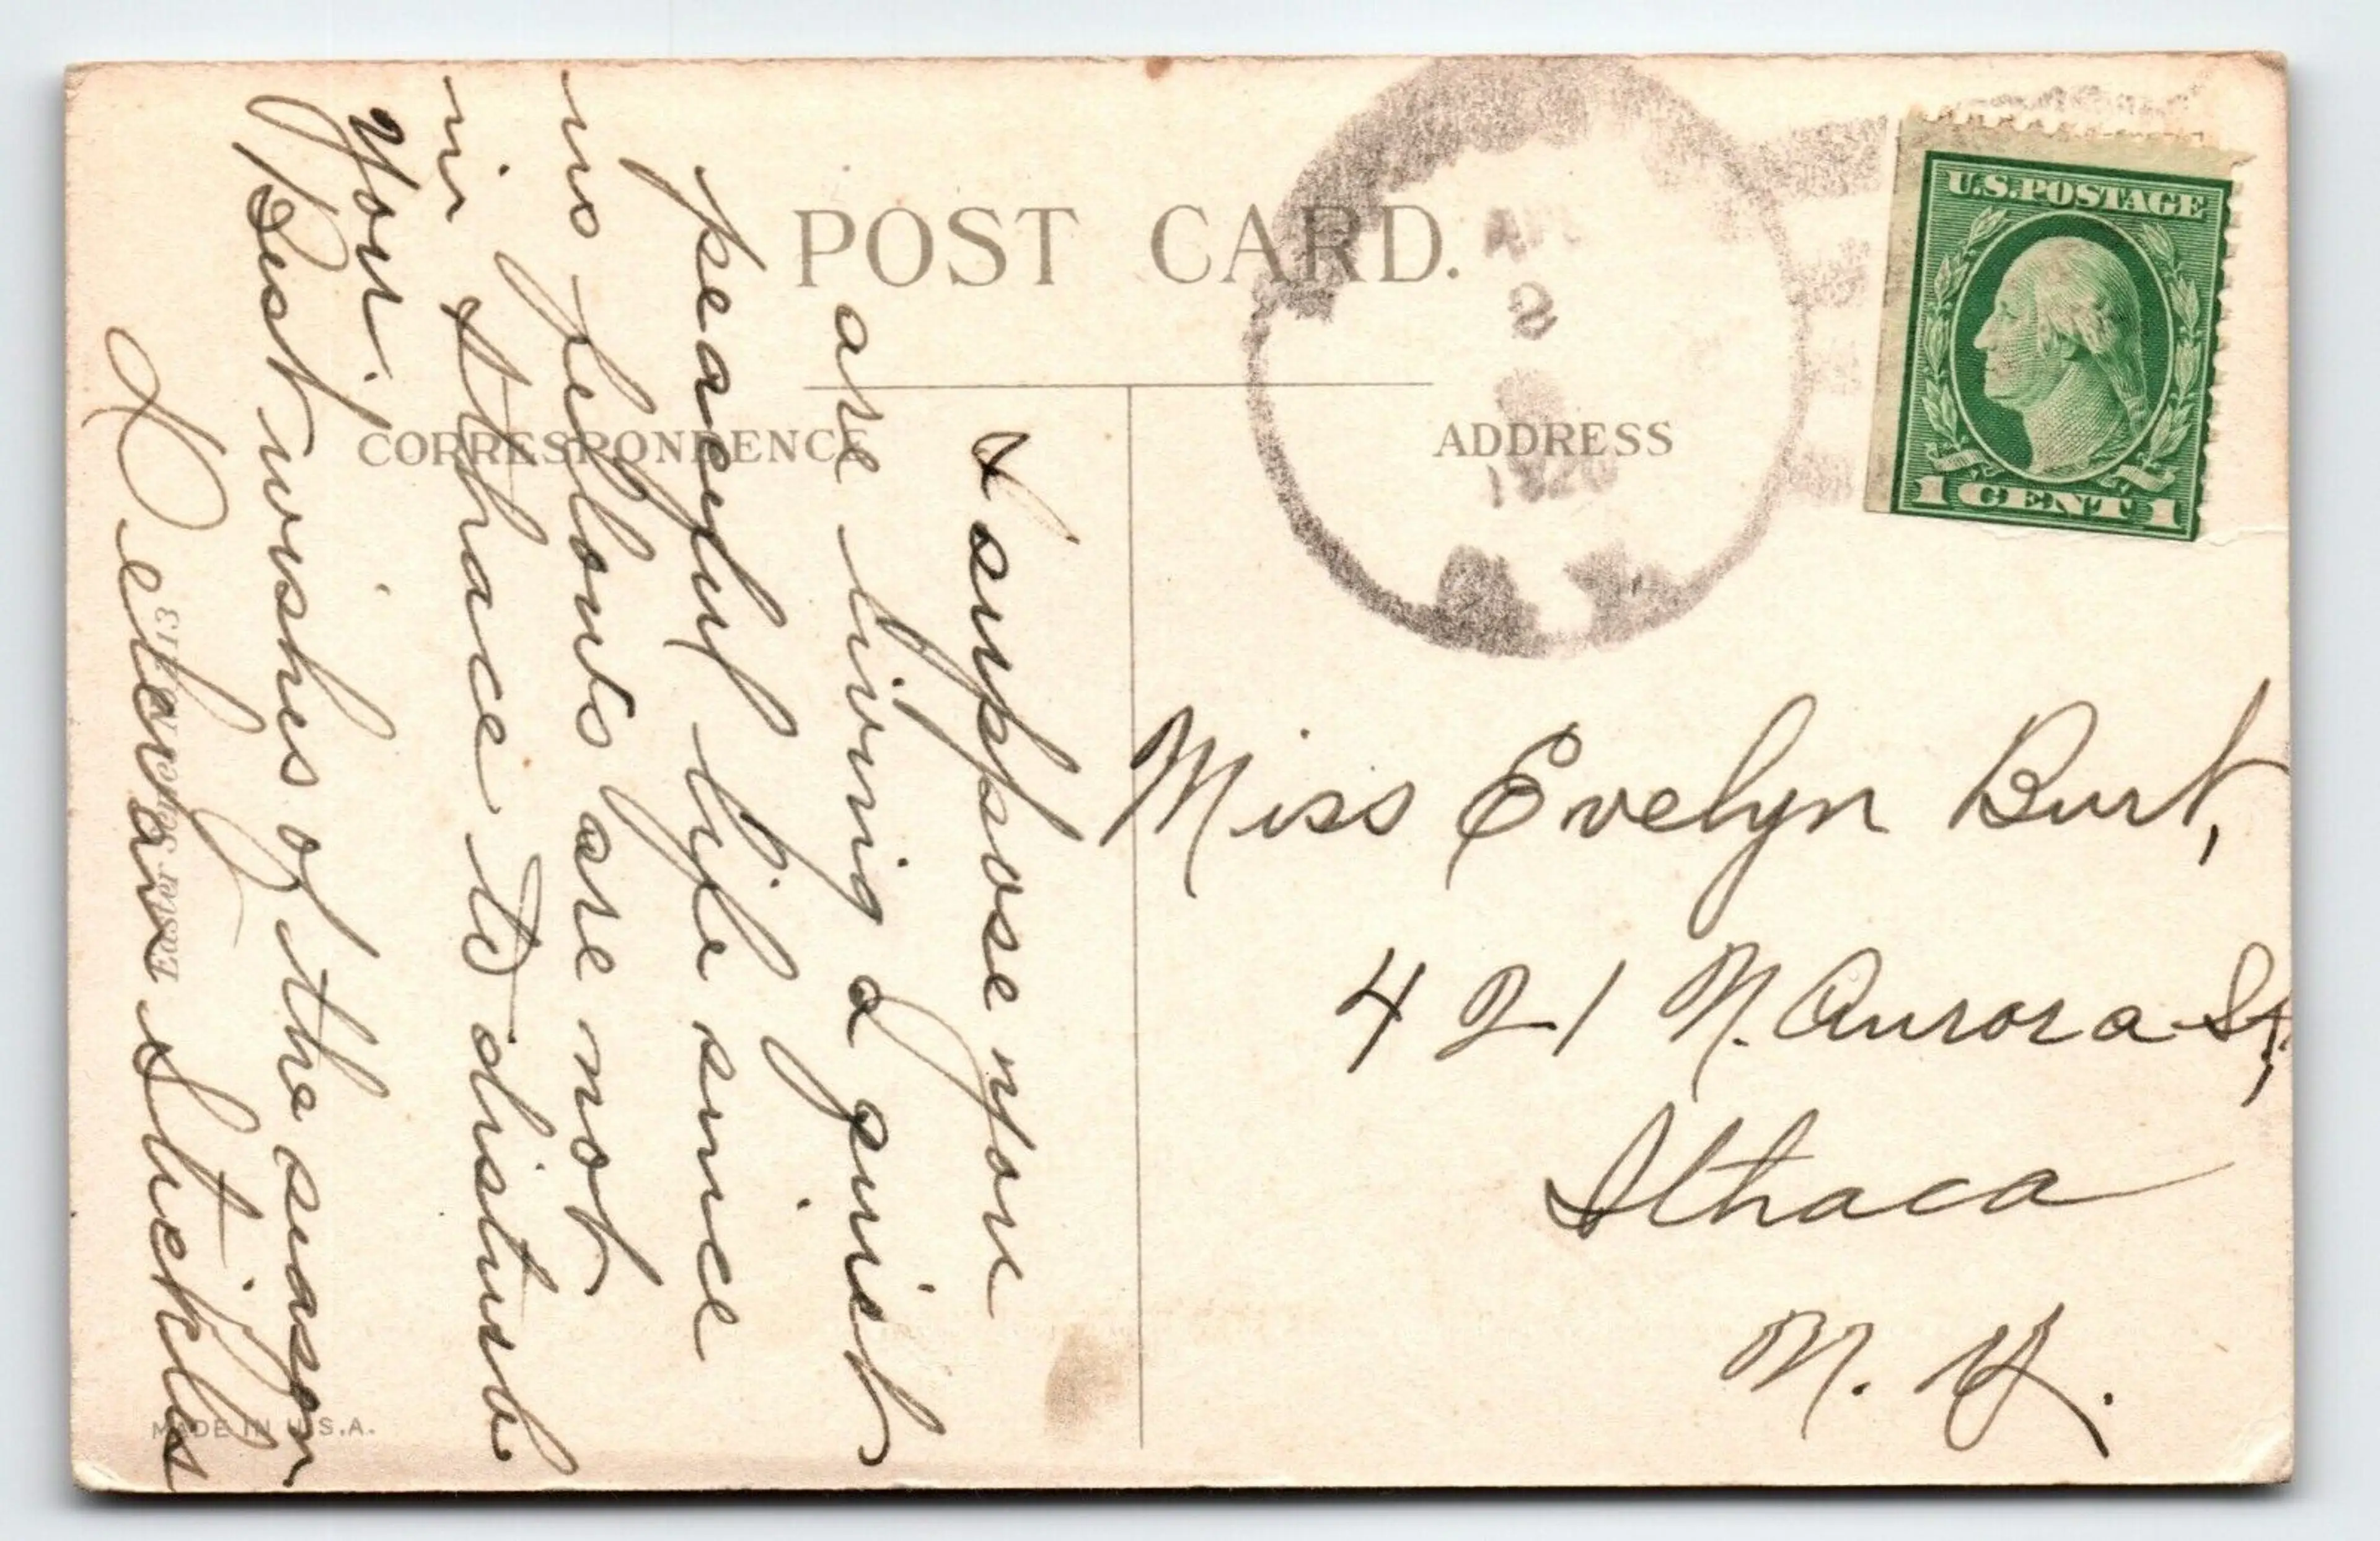 POST CARD.
CORRESPONDENCE
ADDRESS
U.S. POSTAGE
1 CENT 1
2
1920
I suppose you
are living a quiet
peaceful life since
us fellows are not
in Ithace to disturb
you.
Best wishes of the season
Stuckles
Miss Evelyn Burt,
421 N. Aurora St,
Ithaca
N. Y.
Easter
MADE IN U.S.A.